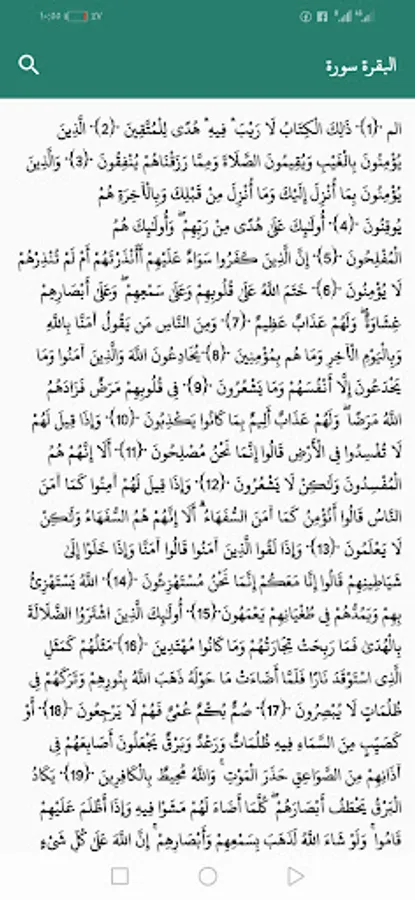 ١٠:٥٥ ٪٧
البقرة سورة
الم -{1}- ذَٰلِكَ الْكِتَابُ لَا رَيْبَ ۛ فِيهِ ۛ هُدًى لِلْمُتَّقِينَ -{2}- الَّذِينَ
يُؤْمِنُونَ بِالْغَيْبِ وَيُقِيمُونَ الصَّلَاةَ وَمِمَّا رَزَقْنَاهُمْ يُنْفِقُونَ -{3}- وَالَّذِينَ
يُؤْمِنُونَ بِمَا أُنْزِلَ إِلَيْكَ وَمَا أُنْزِلَ مِنْ قَبْلِكَ وَبِالْآخِرَةِ هُمْ
يُوقِنُونَ -{4}- أُولَٰئِكَ عَلَىٰ هُدًى مِنْ رَبِّهِمْ ۖ وَأُولَٰئِكَ هُمُ
الْمُفْلِحُونَ -{5}- إِنَّ الَّذِينَ كَفَرُوا سَوَاءٌ عَلَيْهِمْ أَأَنْذَرْتَهُمْ أَمْ لَمْ تُنْذِرْهُمْ
لَا يُؤْمِنُونَ -{6}- خَتَمَ اللَّهُ عَلَىٰ قُلُوبِهِمْ وَعَلَىٰ سَمْعِهِمْ ۖ وَعَلَىٰ أَبْصَارِهِمْ
غِشَاوَةٌ ۖ وَلَهُمْ عَذَابٌ عَظِيمٌ -{7}- وَمِنَ النَّاسِ مَنْ يَقُولُ آمَنَّا بِاللَّهِ
وَبِالْيَوْمِ الْآخِرِ وَمَا هُمْ بِمُؤْمِنِينَ -{8}- يُخَادِعُونَ اللَّهَ وَالَّذِينَ آمَنُوا وَمَا
يَخْدَعُونَ إِلَّا أَنْفُسَهُمْ وَمَا يَشْعُرُونَ -{9}- فِي قُلُوبِهِمْ مَرَضٌ فَزَادَهُمُ
اللَّهُ مَرَضًا ۖ وَلَهُمْ عَذَابٌ أَلِيمٌ بِمَا كَانُوا يَكْذِبُونَ -{10}- وَإِذَا قِيلَ لَهُمْ
لَا تُفْسِدُوا فِي الْأَرْضِ قَالُوا إِنَّمَا نَحْنُ مُصْلِحُونَ -{11}- أَلَا إِنَّهُمْ هُمُ
الْمُفْسِدُونَ وَلَٰكِنْ لَا يَشْعُرُونَ -{12}- وَإِذَا قِيلَ لَهُمْ آمِنُوا كَمَا آمَنَ
النَّاسُ قَالُوا أَنُؤْمِنُ كَمَا آمَنَ السُّفَهَاءُ ۗ أَلَا إِنَّهُمْ هُمُ السُّفَهَاءُ وَلَٰكِنْ
لَا يَعْلَمُونَ -{13}- وَإِذَا لَقُوا الَّذِينَ آمَنُوا قَالُوا آمَنَّا وَإِذَا خَلَوْا إِلَىٰ
شَيَاطِينِهِمْ قَالُوا إِنَّا مَعَكُمْ إِنَّمَا نَحْنُ مُسْتَهْزِئُونَ -{14}- اللَّهُ يَسْتَهْزِئُ
بِهِمْ وَيَمُدُّهُمْ فِي طُغْيَانِهِمْ يَعْمَهُونَ -{15}- أُولَٰئِكَ الَّذِينَ اشْتَرَوُا الضَّلَالَةَ
بِالْهُدَىٰ فَمَا رَبِحَتْ تِجَارَتُهُمْ وَمَا كَانُوا مُهْتَدِينَ -{16}- مَثَلُهُمْ كَمَثَلِ
الَّذِي اسْتَوْقَدَ نَارًا فَلَمَّا أَضَاءَتْ مَا حَوْلَهُ ذَهَبَ اللَّهُ بِنُورِهِمْ وَتَرَكَهُمْ فِي
ظُلُمَاتٍ لَا يُبْصِرُونَ -{17}- صُمٌّ بُكْمٌ عُمْيٌ فَهُمْ لَا يَرْجِعُونَ -{18}- أَوْ
كَصَيِّبٍ مِنَ السَّمَاءِ فِيهِ ظُلُمَاتٌ وَرَعْدٌ وَبَرْقٌ يَجْعَلُونَ أَصَابِعَهُمْ فِي
آذَانِهِمْ مِنَ الصَّوَاعِقِ حَذَرَ الْمَوْتِ ۚ وَاللَّهُ مُحِيطٌ بِالْكَافِرِينَ -{19}- يَكَادُ
الْبَرْقُ يَخْطَفُ أَبْصَارَهُمْ ۖ كُلَّمَا أَضَاءَ لَهُمْ مَشَوْا فِيهِ وَإِذَا أَظْلَمَ عَلَيْهِمْ
قَامُوا ۚ وَلَوْ شَاءَ اللَّهُ لَذَهَبَ بِسَمْعِهِمْ وَأَبْصَارِهِمْ ۚ إِنَّ اللَّهَ عَلَىٰ كُلِّ شَيْءٍ